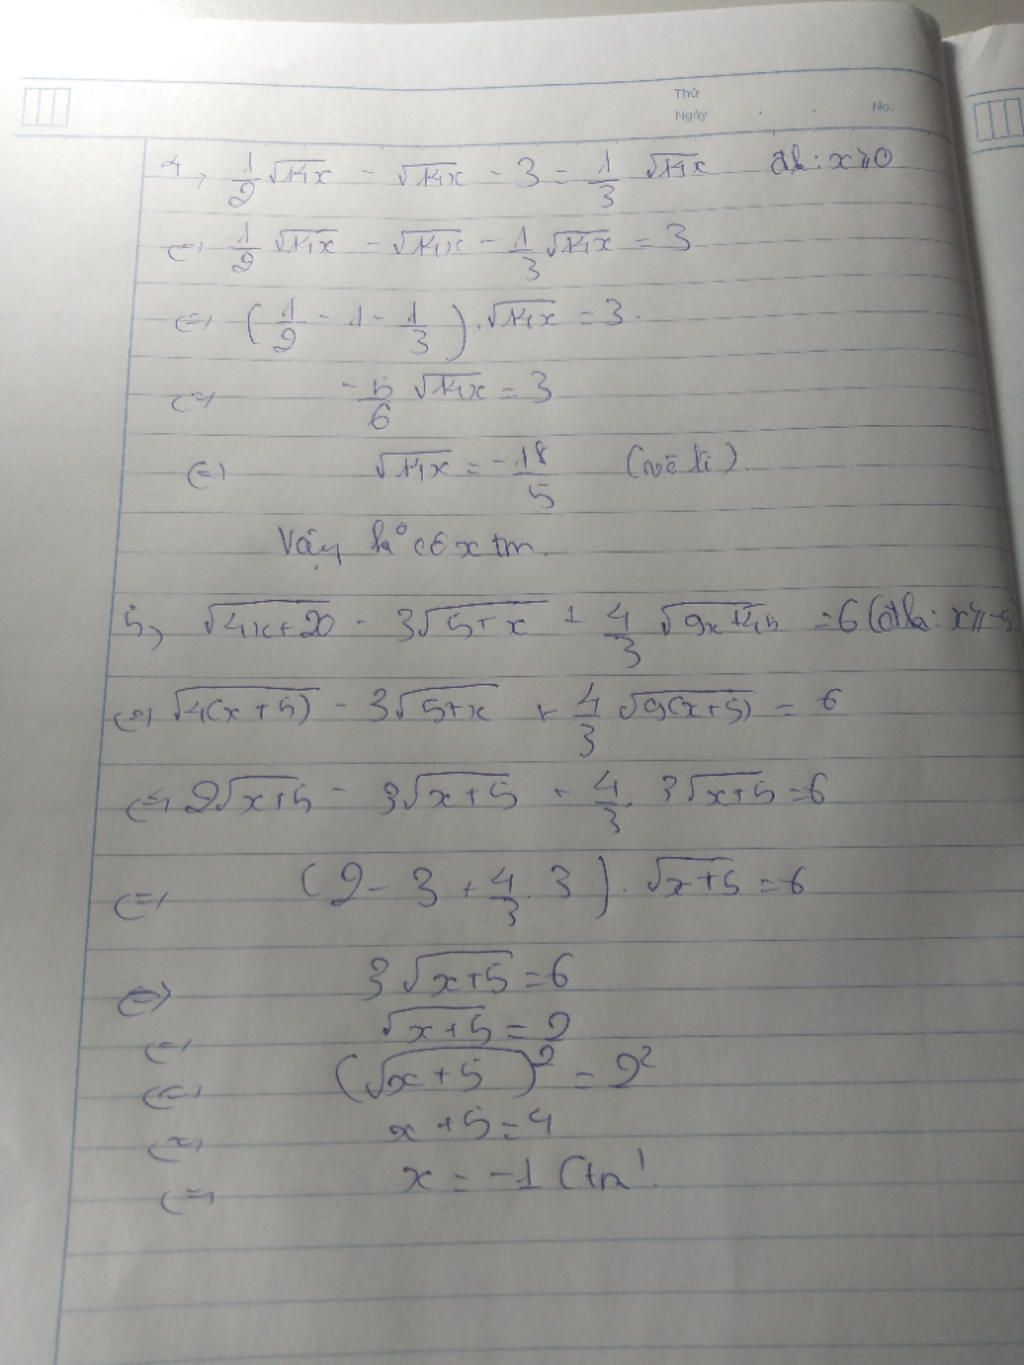 Thứ
Ngày No.
4, 1/2 √14x - √14x - 3 = 1/3 √14x đk: x ⩾ 0
<=> 1/2 √14x - √14x - 1/3 √14x = 3
<=> (1/2 - 1 - 1/3).√14x = 3.
<=> -5/6 √14x = 3
<=> √14x = -18/5 (vô lí)
Vậy k° có x tm.
5, √(4x+20) - 3√(5+x) + 4/3 √(9x+45) = 6 (đk: x ⩾ -5
<=> √(4(x+5)) - 3√(5+x) + 4/3 √(9(x+5)) = 6
<=> 2√(x+5) - 3√(x+5) + 4/3 . 3√(x+5) = 6
<=> (2 - 3 + 4/3 . 3).√(x+5) = 6
<=> 3√(x+5) = 6
<=> √(x+5) = 2
<=> (√(x+5))² = 2²
<=> x+5 = 4
<=> x = -1 (tm)